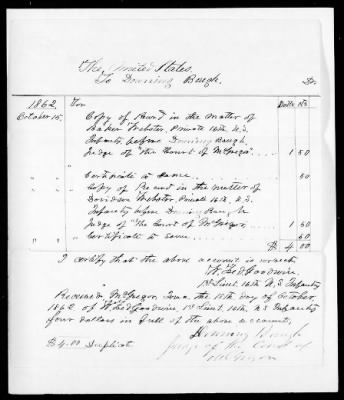 The United States,
To Downing Baugh. Dr.
1862 For Dolls Cts
October 15, Copy of Record in the matter of
Baker Webster, Private 16th U.S.
Infantry, before Downing Baugh,
Judge of "The Court of McGregor" 1 50
" " Certificate to Same. 50
" " Copy of Record in the matter of
Davidson Webster, Private 16th U.S.
Infantry before Downing Baugh
Judge of "The Court of McGregor, 1 50
" " Certificate to Same 50
$ 4.00
I certify that the above account is correct
Goodwin,
1st Lieut. 16th U.S. Infantry
Received, McGregor, Iowa, the 15th day of October,
1862 of Goodwin, 1st Lieut. 16th, U.S. Infantry
four dollars in full of the above account,
Downing Baugh
Judge of the Court of
McGregor
$4.00 Duplicate